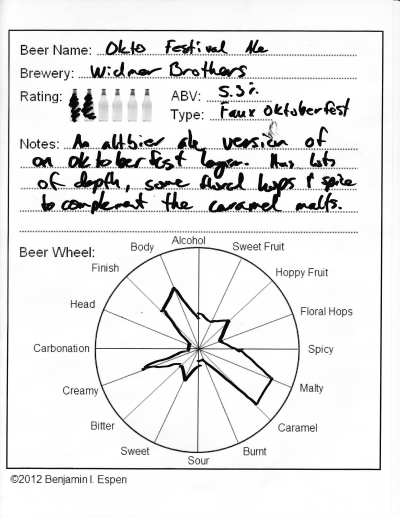 Beer Name: Okto Festival Ale
Brewery: Widmer Brothers
Rating:
ABV: 5.3%
Type: Faux Oktoberfest
Notes: An altbier ale version of
an oktoberfest lager. Has lots
of depth, some floral hops & spice
to complement the caramel malts.
Beer Wheel:
Alcohol
Sweet Fruit
Hoppy Fruit
Floral Hops
Spicy
Malty
Caramel
Burnt
Sour
Sweet
Bitter
Creamy
Carbonation
Head
Finish
Body
©2012 Benjamin I. Espen